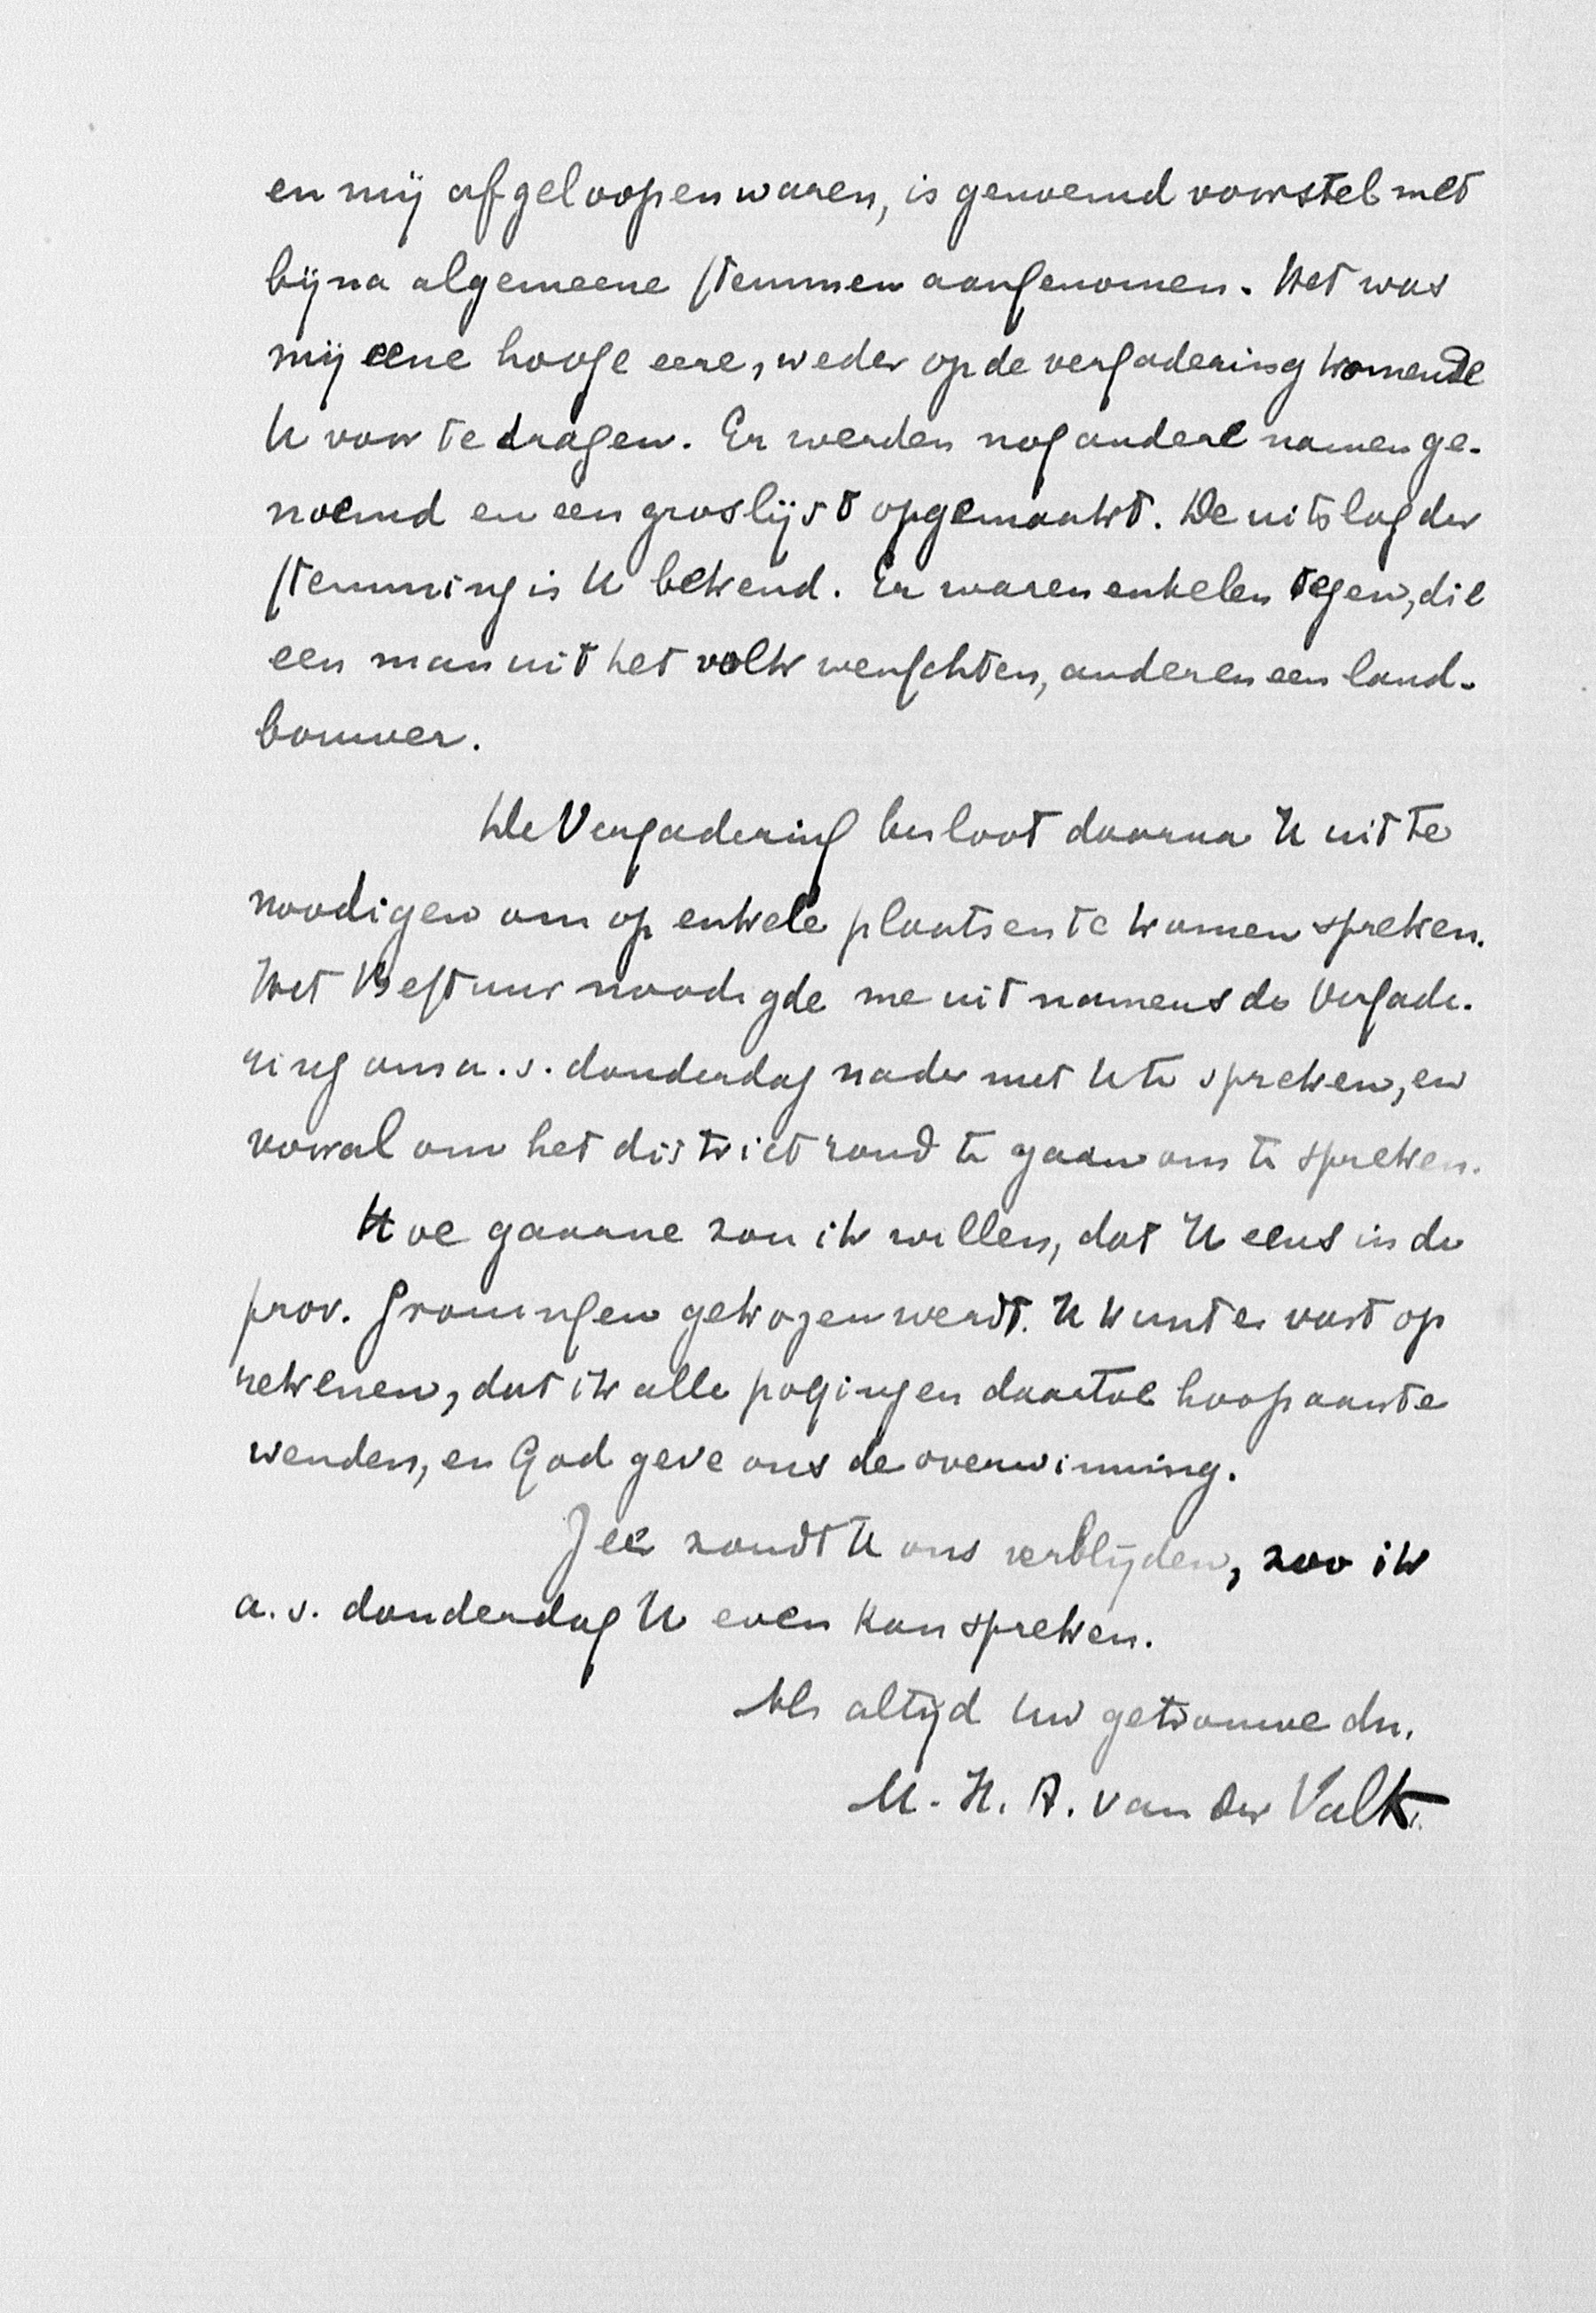 en mij afgeloopen waren, is genoemd voorstel met
bijna algemeene stemmen aangenomen. Het was
mij eene hooge eere, weder op de vergadering komende
U voor te dragen. Er werden nog andere namen ge-
noemd en een groslijst opgemaakt. De uitslag der
stemming is U bekend. Er waren enkelen tegen, die
een man uit het volk wenschten, anderen een land-
bouwer.
De Vergadering besloot daarna U uit te
noodigen om op enkele plaatsen te komen spreken.
Het Bestuur noodigde me uit namens de Vergade-
ring om a.s. donderdag nader met U te spreken, en
vooral om het district rond te gaan om te spreken.
Hoe gaarne zou ik willen, dat U eens in de
prov. Groningen gekozen werdt. U kunt er vast op
rekenen, dat ik alle pogingen daartoe hoop aan te
wenden, en God geve ons de overwinning.
Zeer zoudt U ons verblijden, zoo ik
a.s. donderdag U even kan spreken.
Als altijd Uw getrouwe dn.
M. H. A. van der Valk.